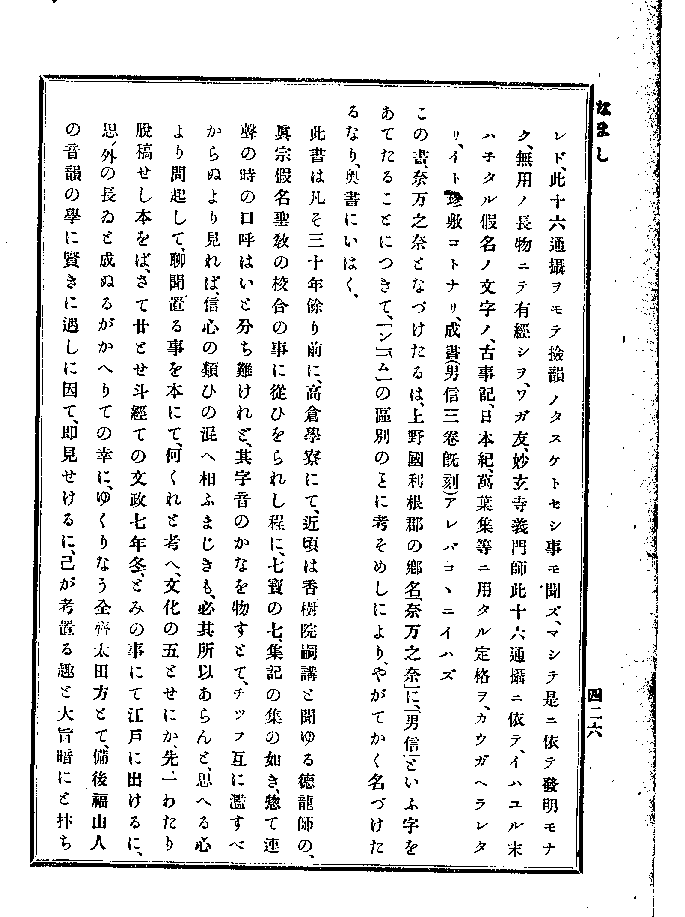 なまし
四二六
レド、此十六通攝ヲモテ撿韻ノタスケトセシ事モ聞ズ、マシテ是ニ依テ發明モナ
ク、無用ノ長物ニテ有經シヲ、ワガ友、妙玄寺義門師此十六通攝ニ依テ、イハユル末
ハネタル假名ノ文字ノ、古事記、日本紀、萬葉集等ニ用タル定格ヲ、カウガヘラレタ
リ、イト敷コトナリ、成書(男信三卷旣刻)アレバコヽニイハズ
この書、奈万之奈となづけたるは、上野國利根郡の鄕名「奈万之奈」に、「男信」といふ字を
あてたることにつきて、「ン」「ム」の區別のことに考そめしにより、やがてかく名づけた
るなり、奥書にいはく、
此書は凡そ三十年餘り前に、高倉學寮にて、近頃は香樹院嗣講と聞ゆる德龍師の、
眞宗假名聖敎の校合の事に從ひをられし程に、七寶の七、集記の集の如き、惣て連
聲の時の口呼はいと分ち難けれど、其字音のかなを物すとて、チッフ互に濫すべ
からぬより見れば、信心の類ひの混へ相ふまじきも、必其所以あらんと、思へる心
より問起して、聊聞置る事を本にて、何くれと考へ、文化の五とせにか、先一わたり
股稿せし本をば、さて廿とせ斗經ての文政七年冬、とみの事にて江戸に出けるに、
思ノ外の長ゐと成ぬるがかへりての幸に、ゆくりなう全齋太田方とて、備後福山人
の音韻の學に賢きに遇しに因て、即見せけるに、己が考置る趣と大旨暗にと抃ち